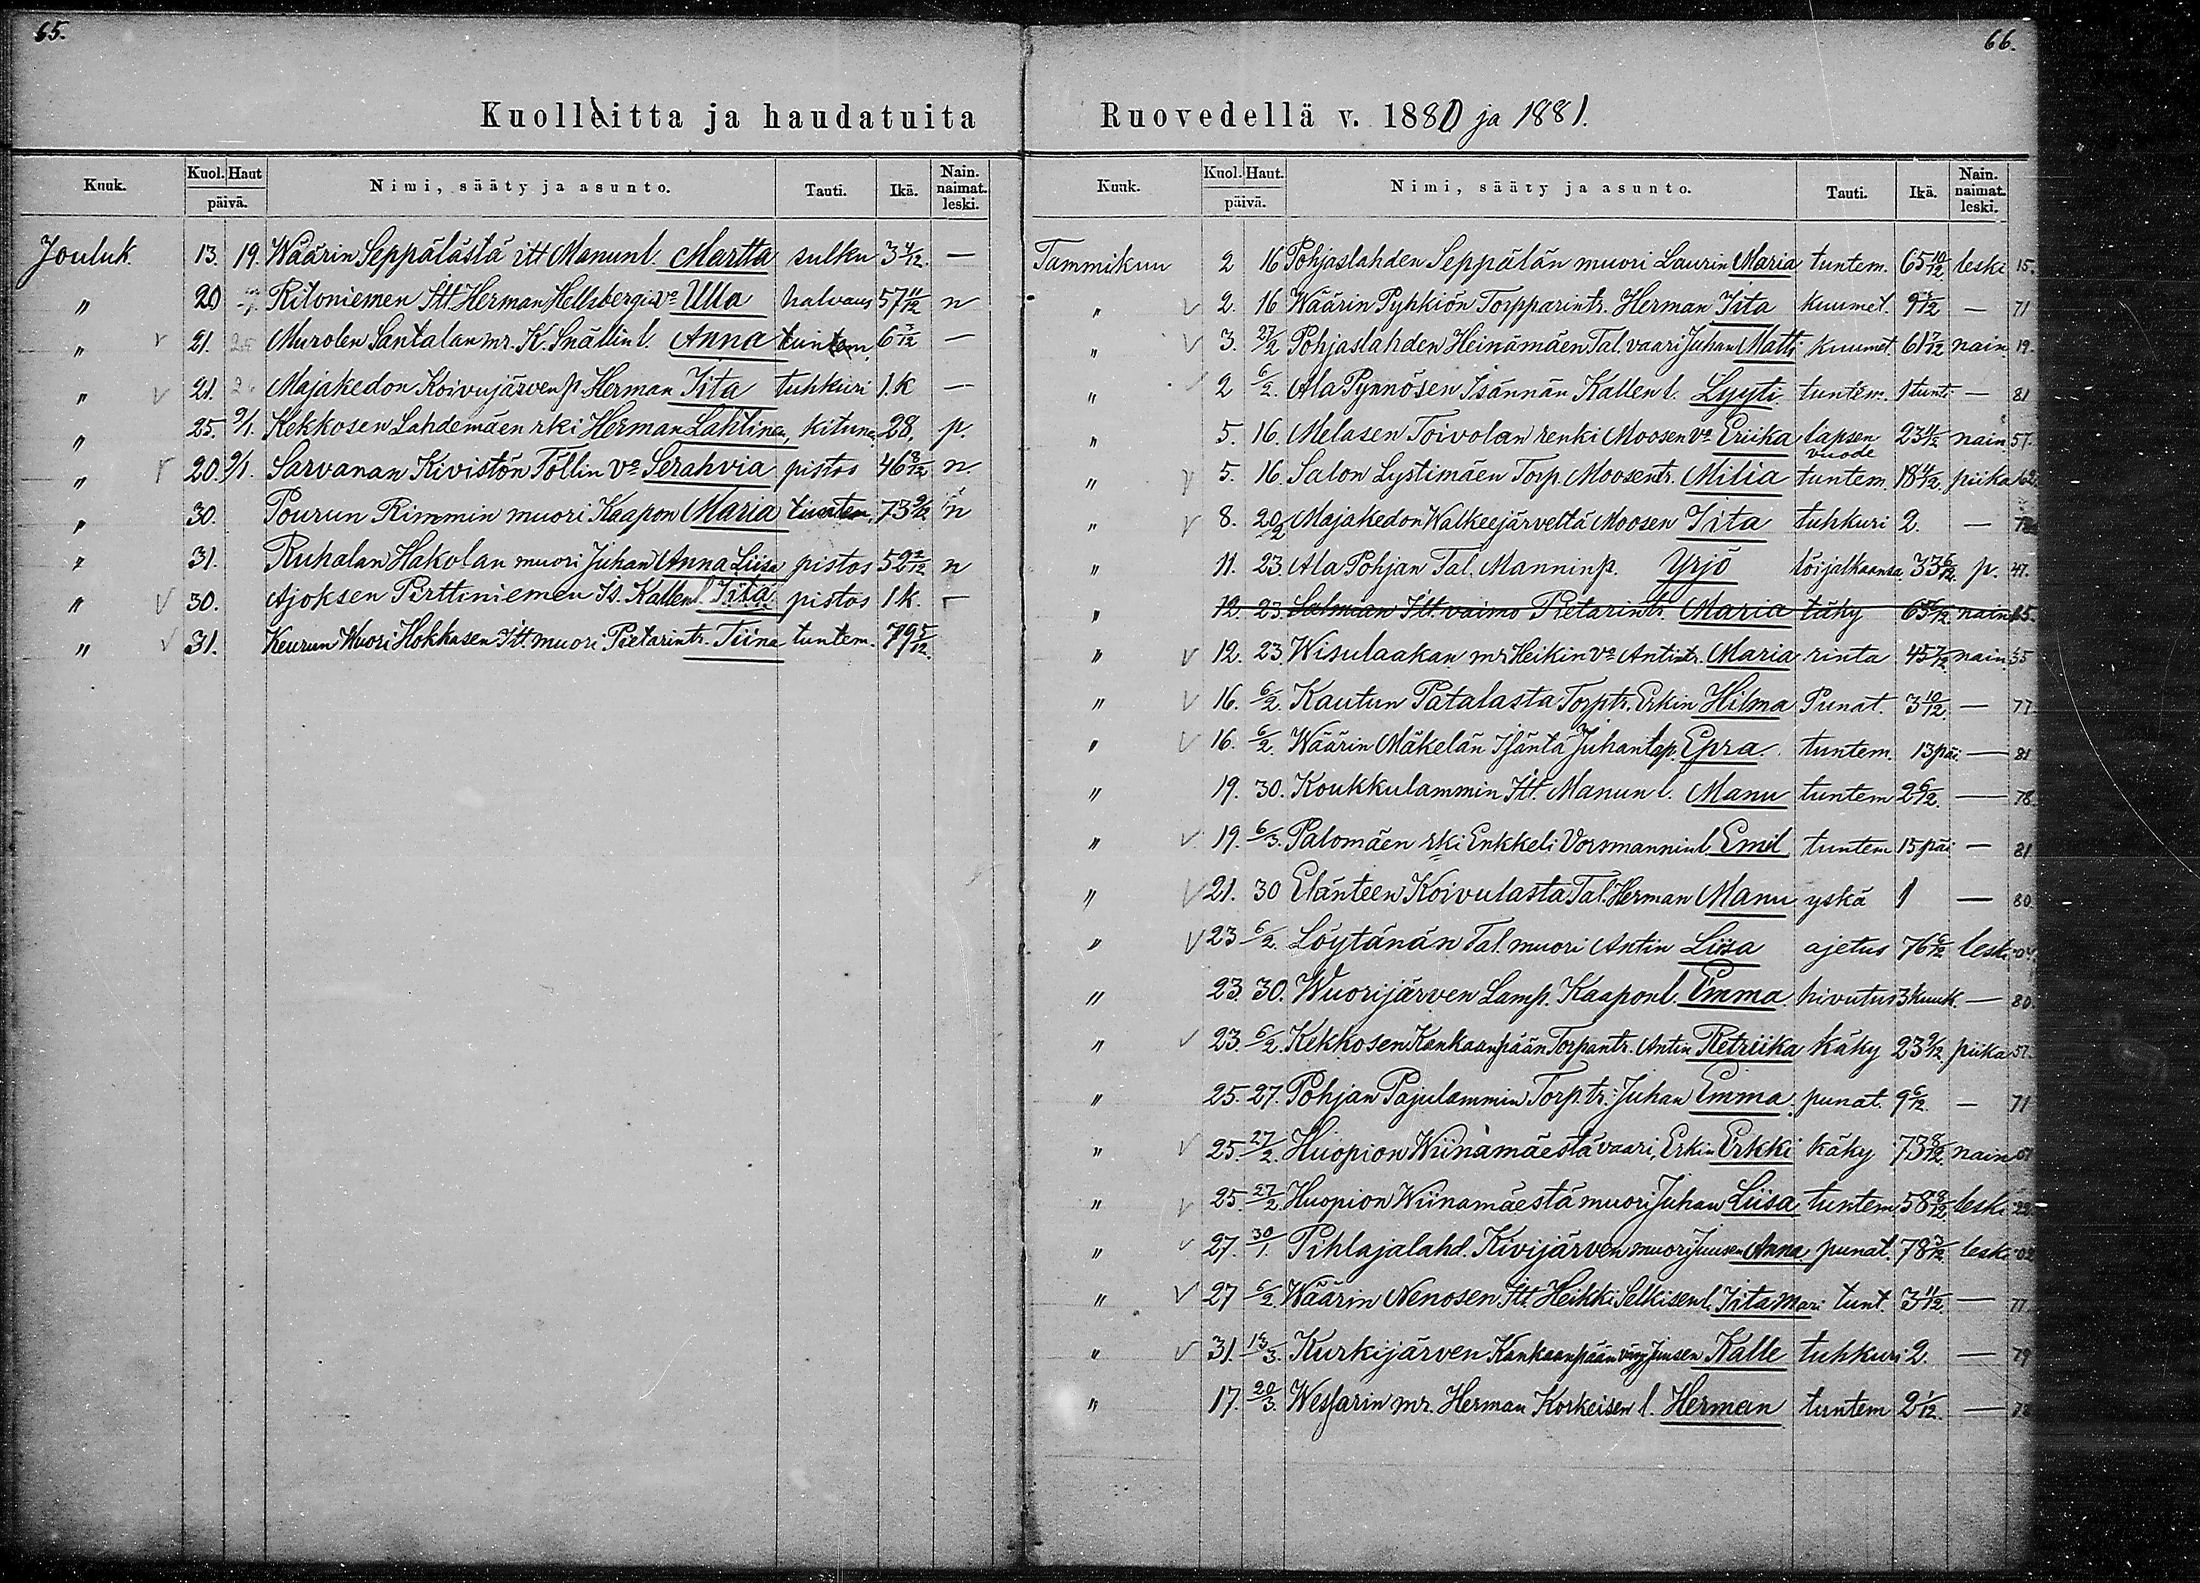 65.
Kuolleitta ja haudatuita
Kuuk. Kuol. Haut päivä. Nimi, sääty ja asunto. Tauti. Ikä. Nain. naimat. leski.
Jouluk. 13. 19. Wäärin Seppälästä itt Manun l. Martta sulku 3 4/12. —
" 20 Ritoniemen Itt. Herman Hellsbergin vo Ulla halvaus 57 11/12 n
" 21. Murolen Santalan mr. K. Snällin l. Anna tuntem, 6 7/12 —
" 21. Majakedon Koivujärven p. Herman Iita tuhkuri 1.k —
" 25. 9/1. Kekkosen Lahdemäen rki Herman Lahtinen, kituma, 28, p.
" 20. 9/1. Sarvanan Kivistön Töllin vo Serahvia pistos 46 8/12 n.
" 30. Pourun Rimmin muori Kaapon Maria tuntem, 73 9/12 n
" 31. Ruhalan Hakolan muori Juhan Anna Liisa pistos 52 2/12 n
" 30. Ajoksen Pirttiniemen Is. Kallen l. Iita pistos 1 k. —
" 31. Keurun Wuori Hokkasen Itt. muori Pietarintr. Tiina tuntem. 79 5/12.
66.
Ruovedellä v. 1880 ja 1881.
Kuuk. Kuol. Haut. päivä. Nimi, sääty ja asunto. Tauti. Ikä. Nain. naimat. leski.
Tammikuu 2 16 Pohjaslahden Seppälän muori Laurin Maria tuntem. 65 10/12 leski 15.
" 2. 16 Wäärin Pyhkiön Torpparintr. Herman Iita kuumet. 9 2/12 — 71
" 3. 27/2 Pohjaslahden Heinämäen Tal. vaari Juhan Matti kuumet. 61 7/12 nain 19.
" 2 6/2. Ala Pynnösen Isännän Kallen l. Lyyti tuntem. 1 tunti — 81
" 5. 16. Melasen Toivolan renki Moosen vo Eriika lapsen vuode 23 4/12 nain. 57.
" 5. 16 Salon Lystimäen Torp. Moosentr. Milia tuntem. 18 4/12. piika 62.
" 8. 20/2 Majakedon Walkeejärveltä Moosen Iita tuhkuri 2. —
" 11. 23. Ala Pohjan Tal. Mannin p. Yrjö löijalkaansa 33 6/12. p. 47.
" 12. 23. Salmian Itt. vaimo Pietarintr. Maria täky nain
" 12. 23. Wisulaakan mr Heikin vo Antintr. Maria rinta 45 7/12 nain. 35
" 16. 6/2. Kautun Patalasta Torptr. Erkin Hilma Punat. 3 10/12. — 77
" 16. 6/2. Wäärin Mäkelän Isäntä Juhan lap. Epra tuntem. 13 päi — 81
" 19. 30. Koukkulammin Itt. Manun l. Manu tuntem 2 6/12. — 78.
" 19. 6/3. Palomäen rki Enkkeli Vorsmannin l. Emil tuntem 15 päi — 81
" 21. 30 Elänteen Koivulasta Tal. Herman Manu yskä 1 — 80
" 23 6/2. Löytänän Tal. muori Antin Liisa ajetus 76 6/12 leski
" 23. 30. Wuorijärven Lamp. Kaapon l. Emma hivutus 3 kuuk. — 80.
" 23. 6/2. Kekkosen Kankaanpään Torpantr. Antin Retriika käky 23 9/12. piika 57.
" 25. 27. Pohjan Pajulammin Torp. tr. Juhan Emma punat. 9 6/12. — 71
" 25. 27/2. Huopion Wiinamäestä vaari, Erkin Erkki käky 73 8/12. nain
" 25. 27/2. Huopion Wiinamäestä muori Juhan Liisa tuntem 58 8/12 leski 22
" 27. 30/1. Pihlajalahd. Kivijärven muori Juusen Anna punat. 78 3/12. leski 02
" 27 6/2. Wäärin Nenosen Itt. Heikki Selkisen l. Iita Mari tunt. 3 11/12. — 77
" 31. 13/3. Kurkijärven Kankaanpään Juusen Kalle tuhkuri 2. — 79
" 17. 20/3. Wesjarin mr. Herman Korkeisen l. Herman tuntem 2 1/12. —